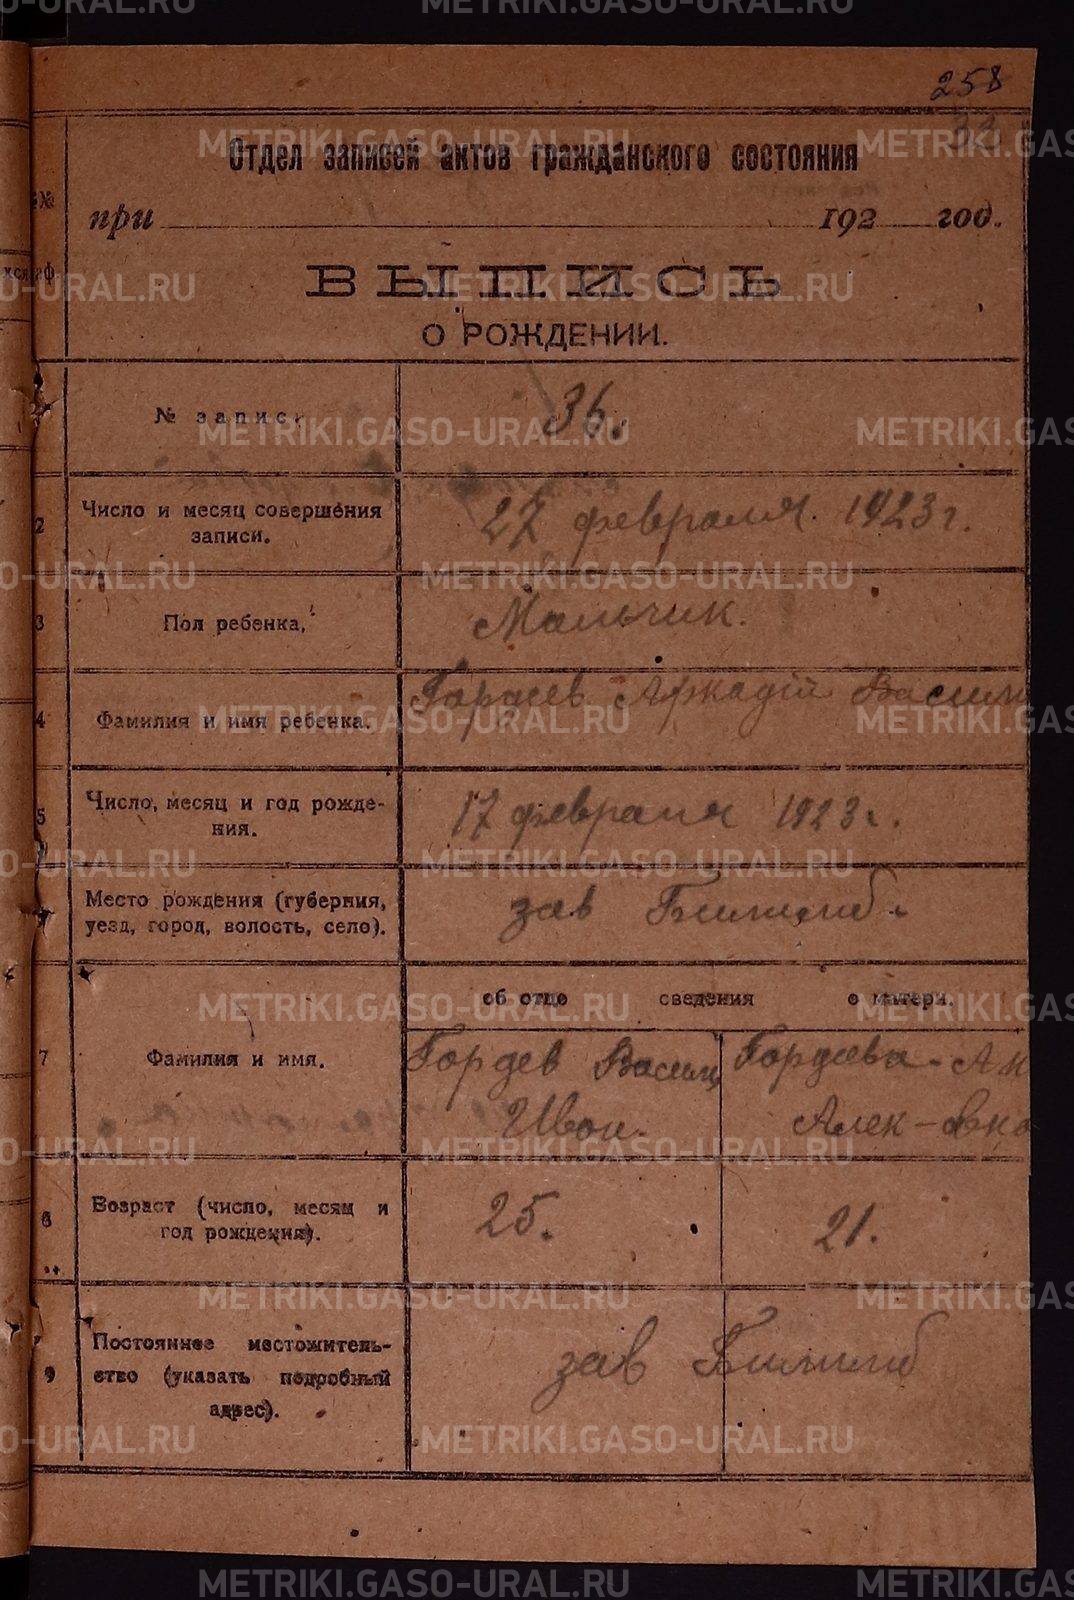 258
33
Отдел записей актов гражданского состояния
при 192 год.
ВЫПИСЬ
О РОЖДЕНИИ.
№ запис. 36.
2 Число и месяц совершения
записи. 27 февраля. 1923 г.
3 Пол ребенка, Мальчик.
4 Фамилия и имя ребенка. Гордеев Аркадій Васили
5 Число, месяц и год рожде-
ния. 17 февраля 1923 г.
Место рождения (губерния,
уезд, город, волость, село). зав Билимб.
об отце сведения о матери.
7 Фамилия и имя. Гордев Васил Гордеева - Ан
Иван. Алек-вна
8 Возраст (число, месяц и
год рождения). 25. 21.
9 Постояннее местожитель-
ство (указать подробный
адрес). зав Билимб
METRIKI.GASO-URAL.RU